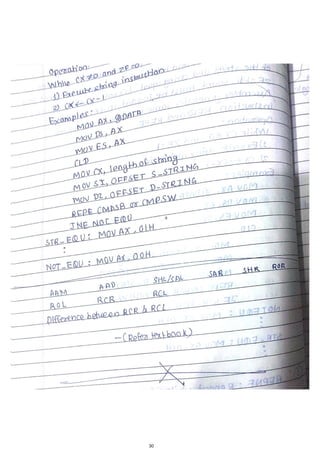 Operation:
While CX≠0 and ZF=0.
1) Execute string instruction
2) CX ← CX-1
Examples:
MOV AX, @DATA
MOV DS, AX
MOV ES, AX
CLD
MOV CX, length of string
MOV SI, OFFSET S_STRING
MOV DI, OFFSET D_STRING
REPE CMPSB or CMPSW
JNE NOT EQU
STR_EQU: MOV AX, 01H
:
NOT_EQU: MOV AX, 00H.
AAM AAD SHL/SAL SAR SHR ROR
ROL RCR RCL
Difference between RCR & RCL
-(Refer textbook)
30